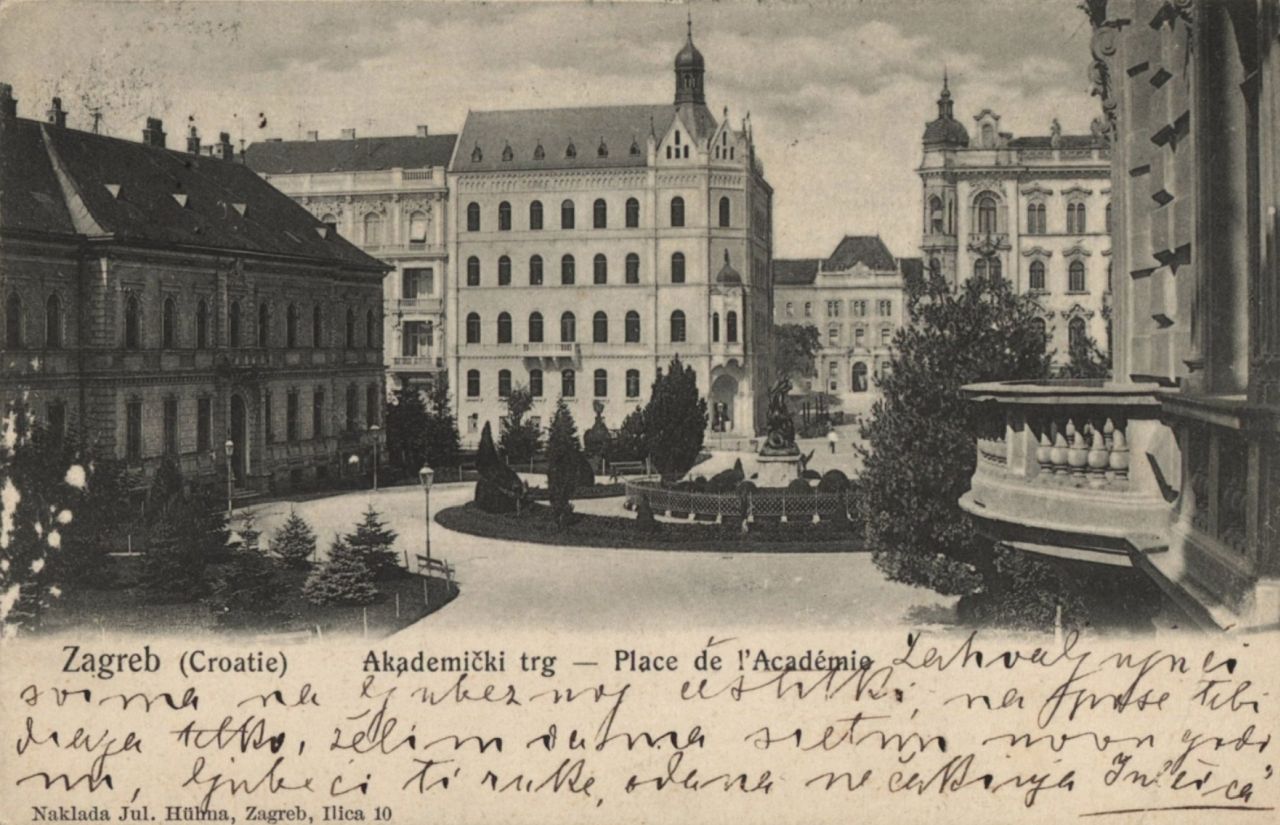 Zagreb (Croatie) Akademički trg — Place de l'Académie
Zahvaljujuci
svima na ljubeznoj čestitki, na
tebi
draga tetko, želim svima sretnu novu godi
nu, ljubeći ti ruke, odana nečakinja
Naklada Jul. Hühna, Zagreb, Ilica 10